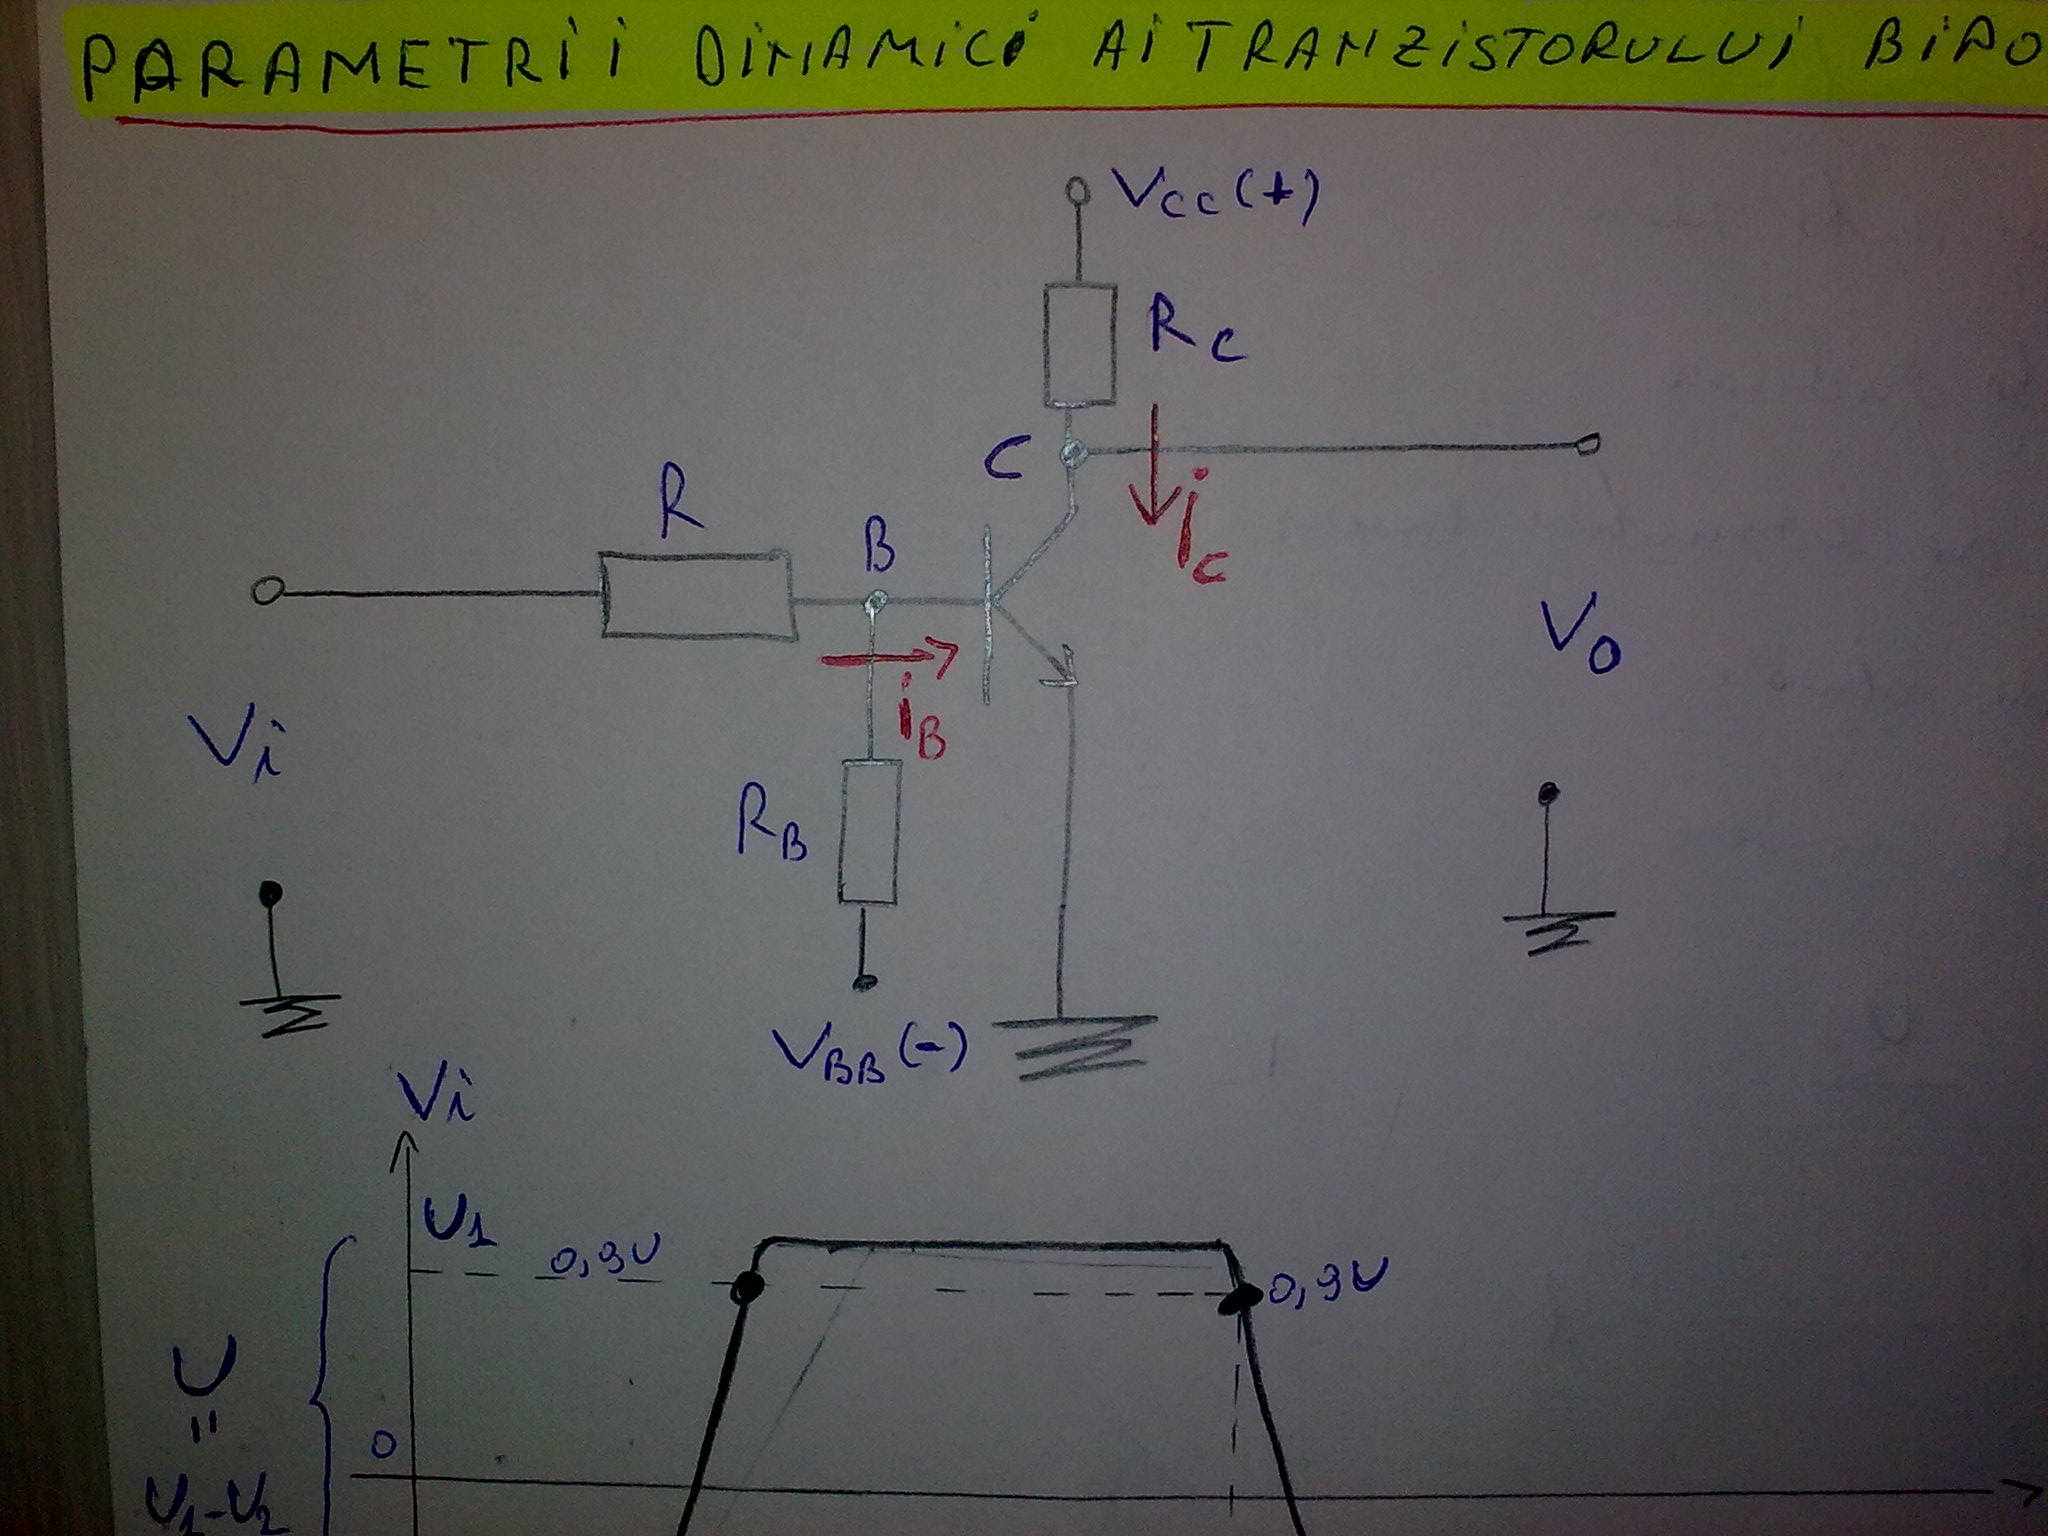 PARAMETRII DINAMICI AI TRANZISTORULUI BIPO
VCC(+)
RC
C
iC
R
B
iB
Vi
V0
RB
VBB(-)
Vi
U1
0,9U
0,9U
U
=
U1-U2
0